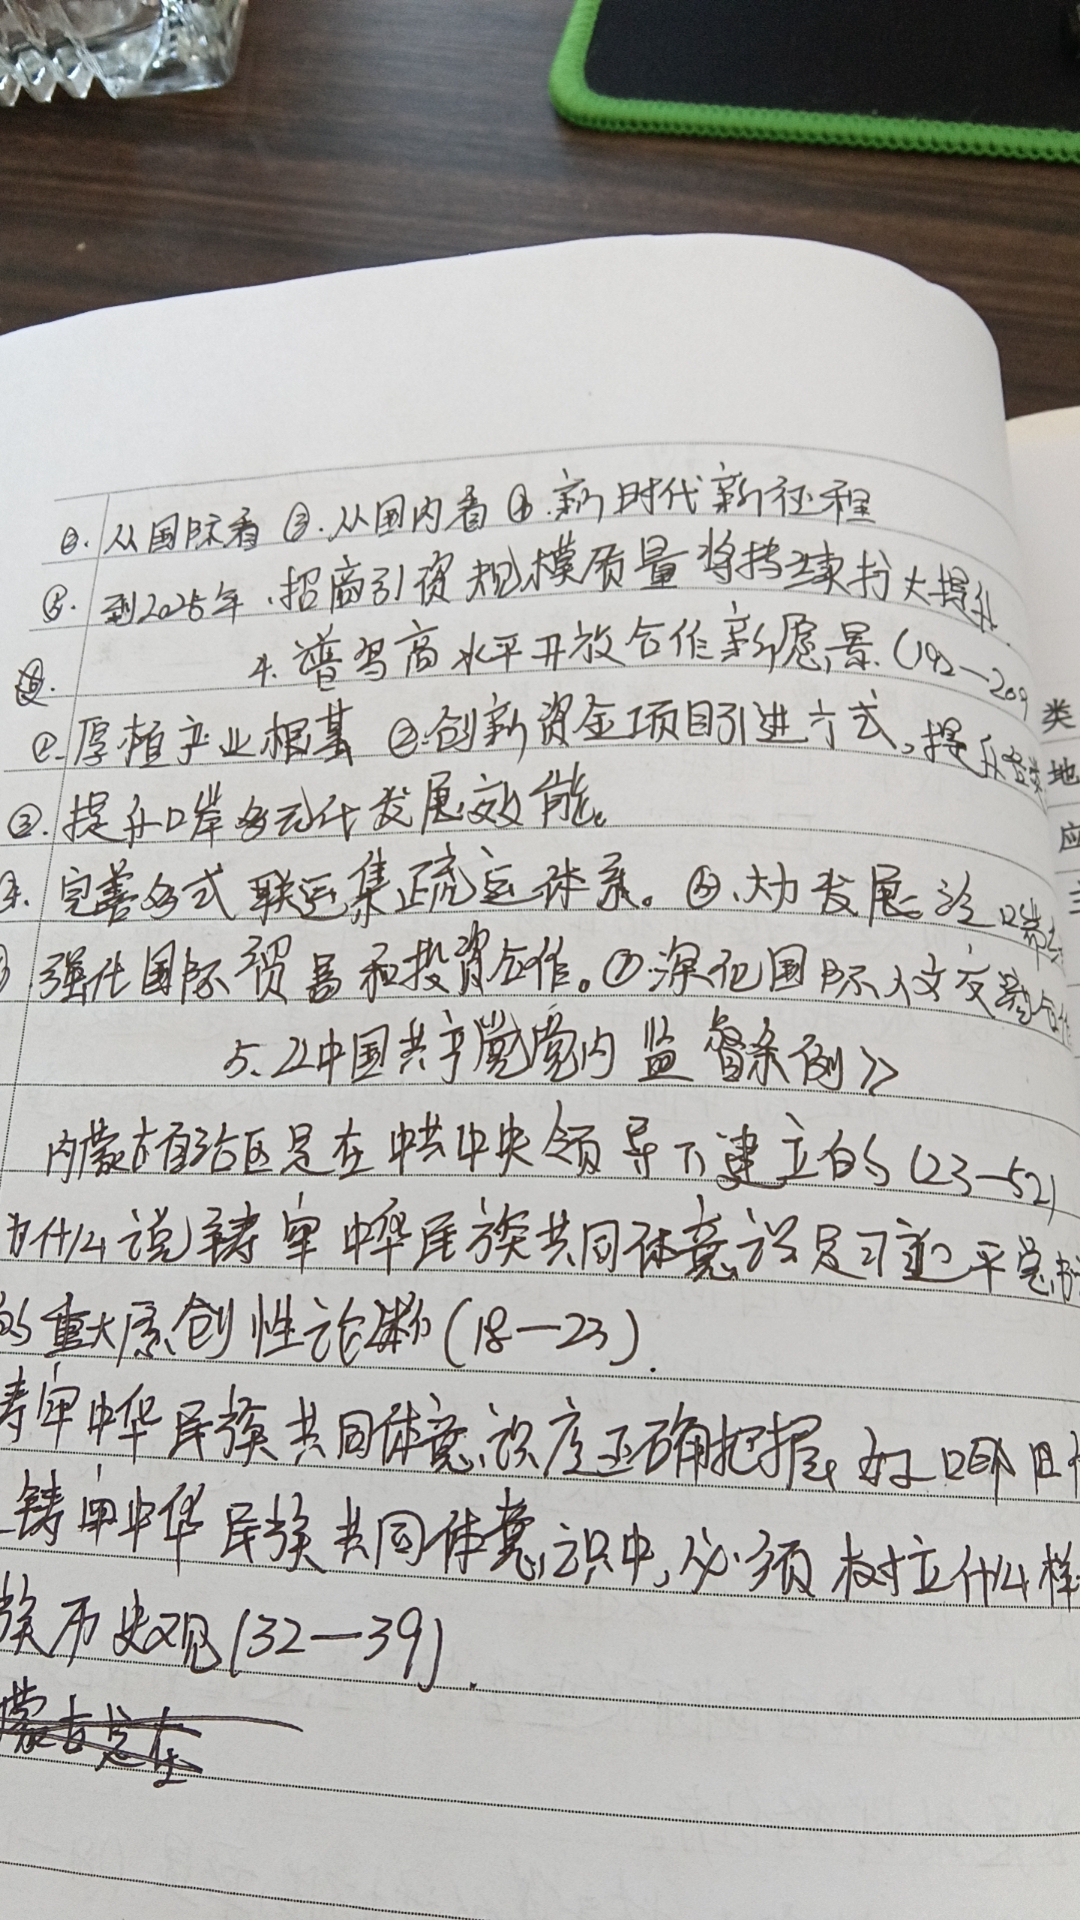 ②. 从国际看 ③. 从国内看 ④. 新时代新征程
⑤. 到2025年,招商引资规模质量将持续扩大提升.
4. 谱写高水平开放合作新愿景.(192—209
①. 厚植产业根基 ②.创新资金项目引进方式,提升
③. 提升口岸多元化发展效能。
完善多式联运集疏运体系。⑤.大力发展泛口岸
强化国际贸易和投资合作。⑦.深化国际人文交流合作
5.《中国共产党党内监督条例》
内蒙古自治区是在中共中央领导下建立的(23—52)
为什么说铸牢中华民族共同体意识是习近平总书
的重大原创性论断(18—23).
铸牢中华民族共同体意识应正确把握好哪四
铸牢中华民族共同体意识中,必须树立什么样
族历史观(32—39).
类
地
应